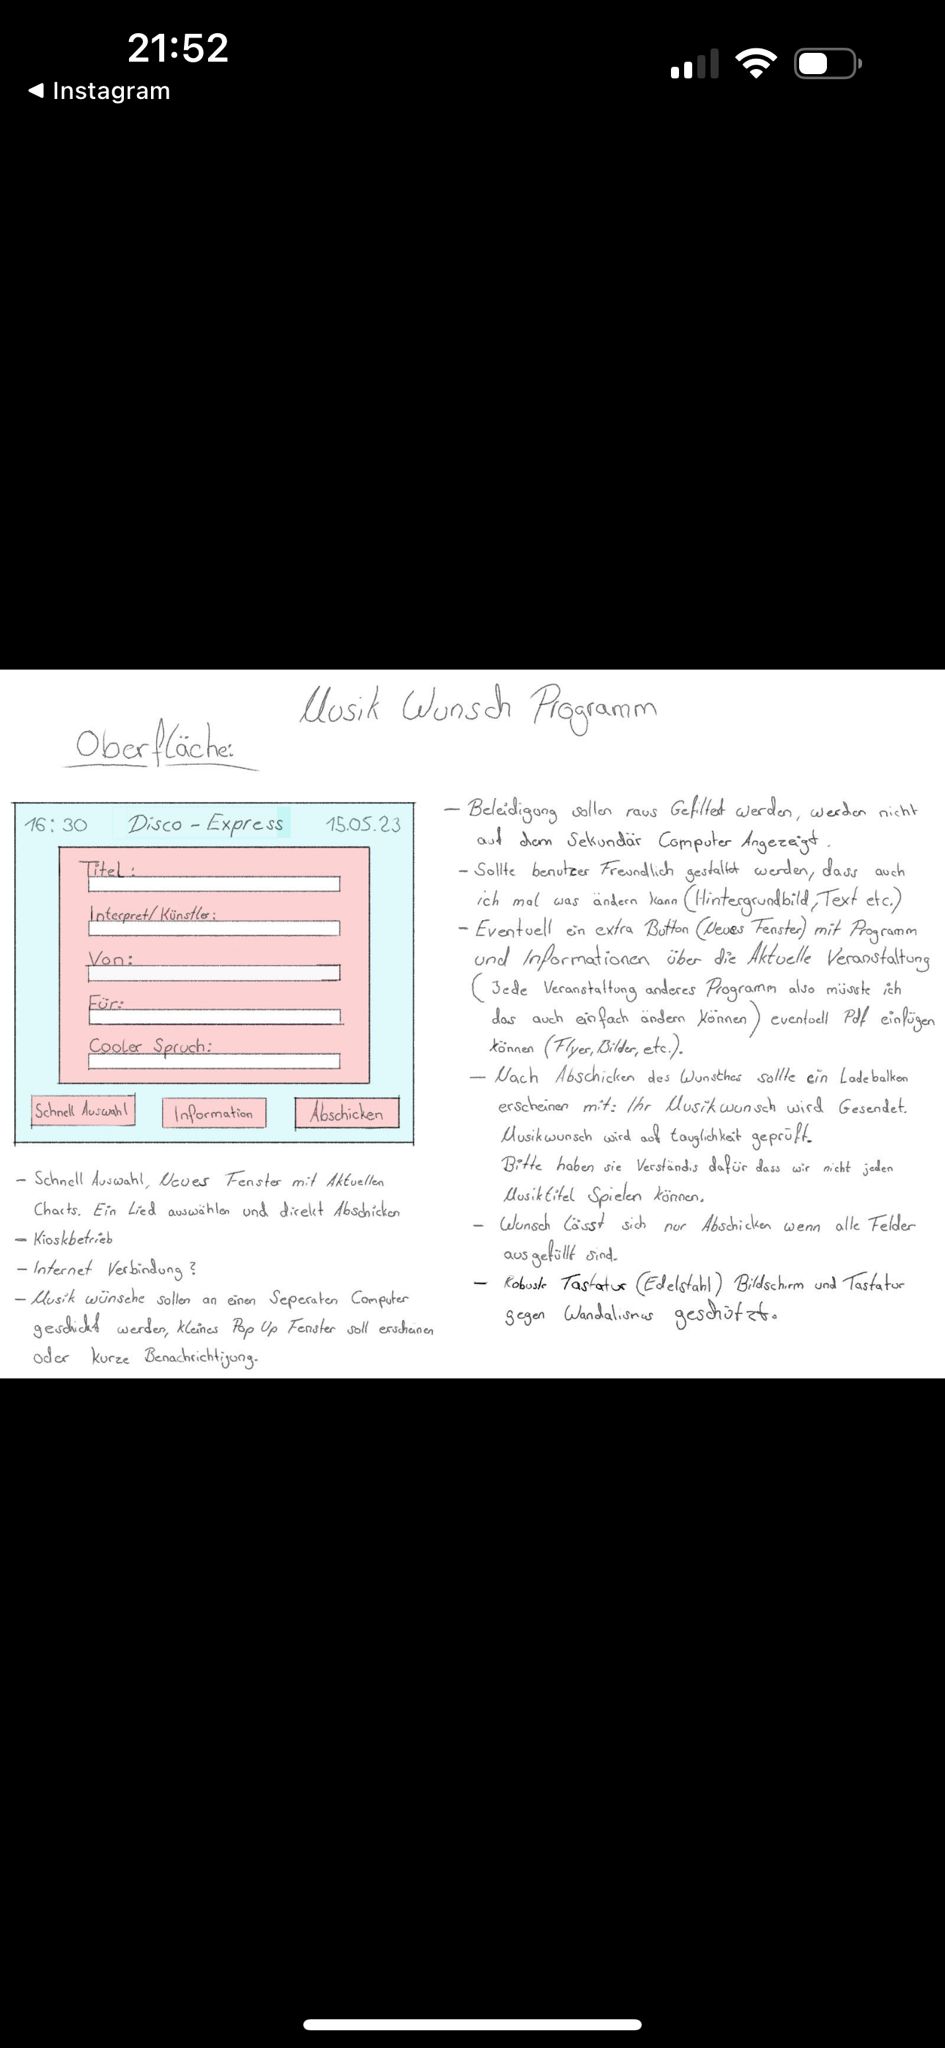 21:52
◀ Instagram
Musik Wunsch Programm
Oberfläche:
16:30 Disco - Express 15.05.23
Titel:
Interpret/Künstler:
Von:
Für:
Cooler Spruch:
Schnell Auswahl Information Abschicken
- Schnell Auswahl, Neues Fenster mit Aktuellen
Charts. Ein Lied auswählen und direkt Abschicken
- Kioskbetrieb
- Internet Verbindung?
- Musik wünsche sollen an einen Seperaten Computer
geschickt werden, kleines Pop Up Fenster soll erscheinen
oder kurze Benachrichtigung.
- Beleidigung sollen raus Gefiltert werden, werden nicht
auf dem Sekundär Computer Angezeigt.
- Sollte benutzer Freundlich gestaltet werden, dass auch
ich mal was ändern kann (Hintergrundbild, Text etc.)
- Eventuell ein extra Button (Neues Fenster) mit Programm
und Informationen über die Aktuelle Veranstaltung
(Jede Veranstaltung anderes Programm also müsste ich
das auch einfach ändern können) eventuell Pdf einfügen
können (Flyer, Bilder, etc.).
- Nach Abschicken des Wunsches sollte ein Ladebalken
erscheinen mit: Ihr Musikwunsch wird Gesendet.
Musikwunsch wird auf tauglichkeit geprüft.
Bitte haben sie Verständis dafür dass wir nicht jeden
Musiktitel Spielen können.
- Wunsch Lässt sich nur Abschicken wenn alle Felder
ausgefüllt sind.
- Robuste Tastatur (Edelstahl) Bildschirm und Tastatur
gegen Wandalismus geschützt.